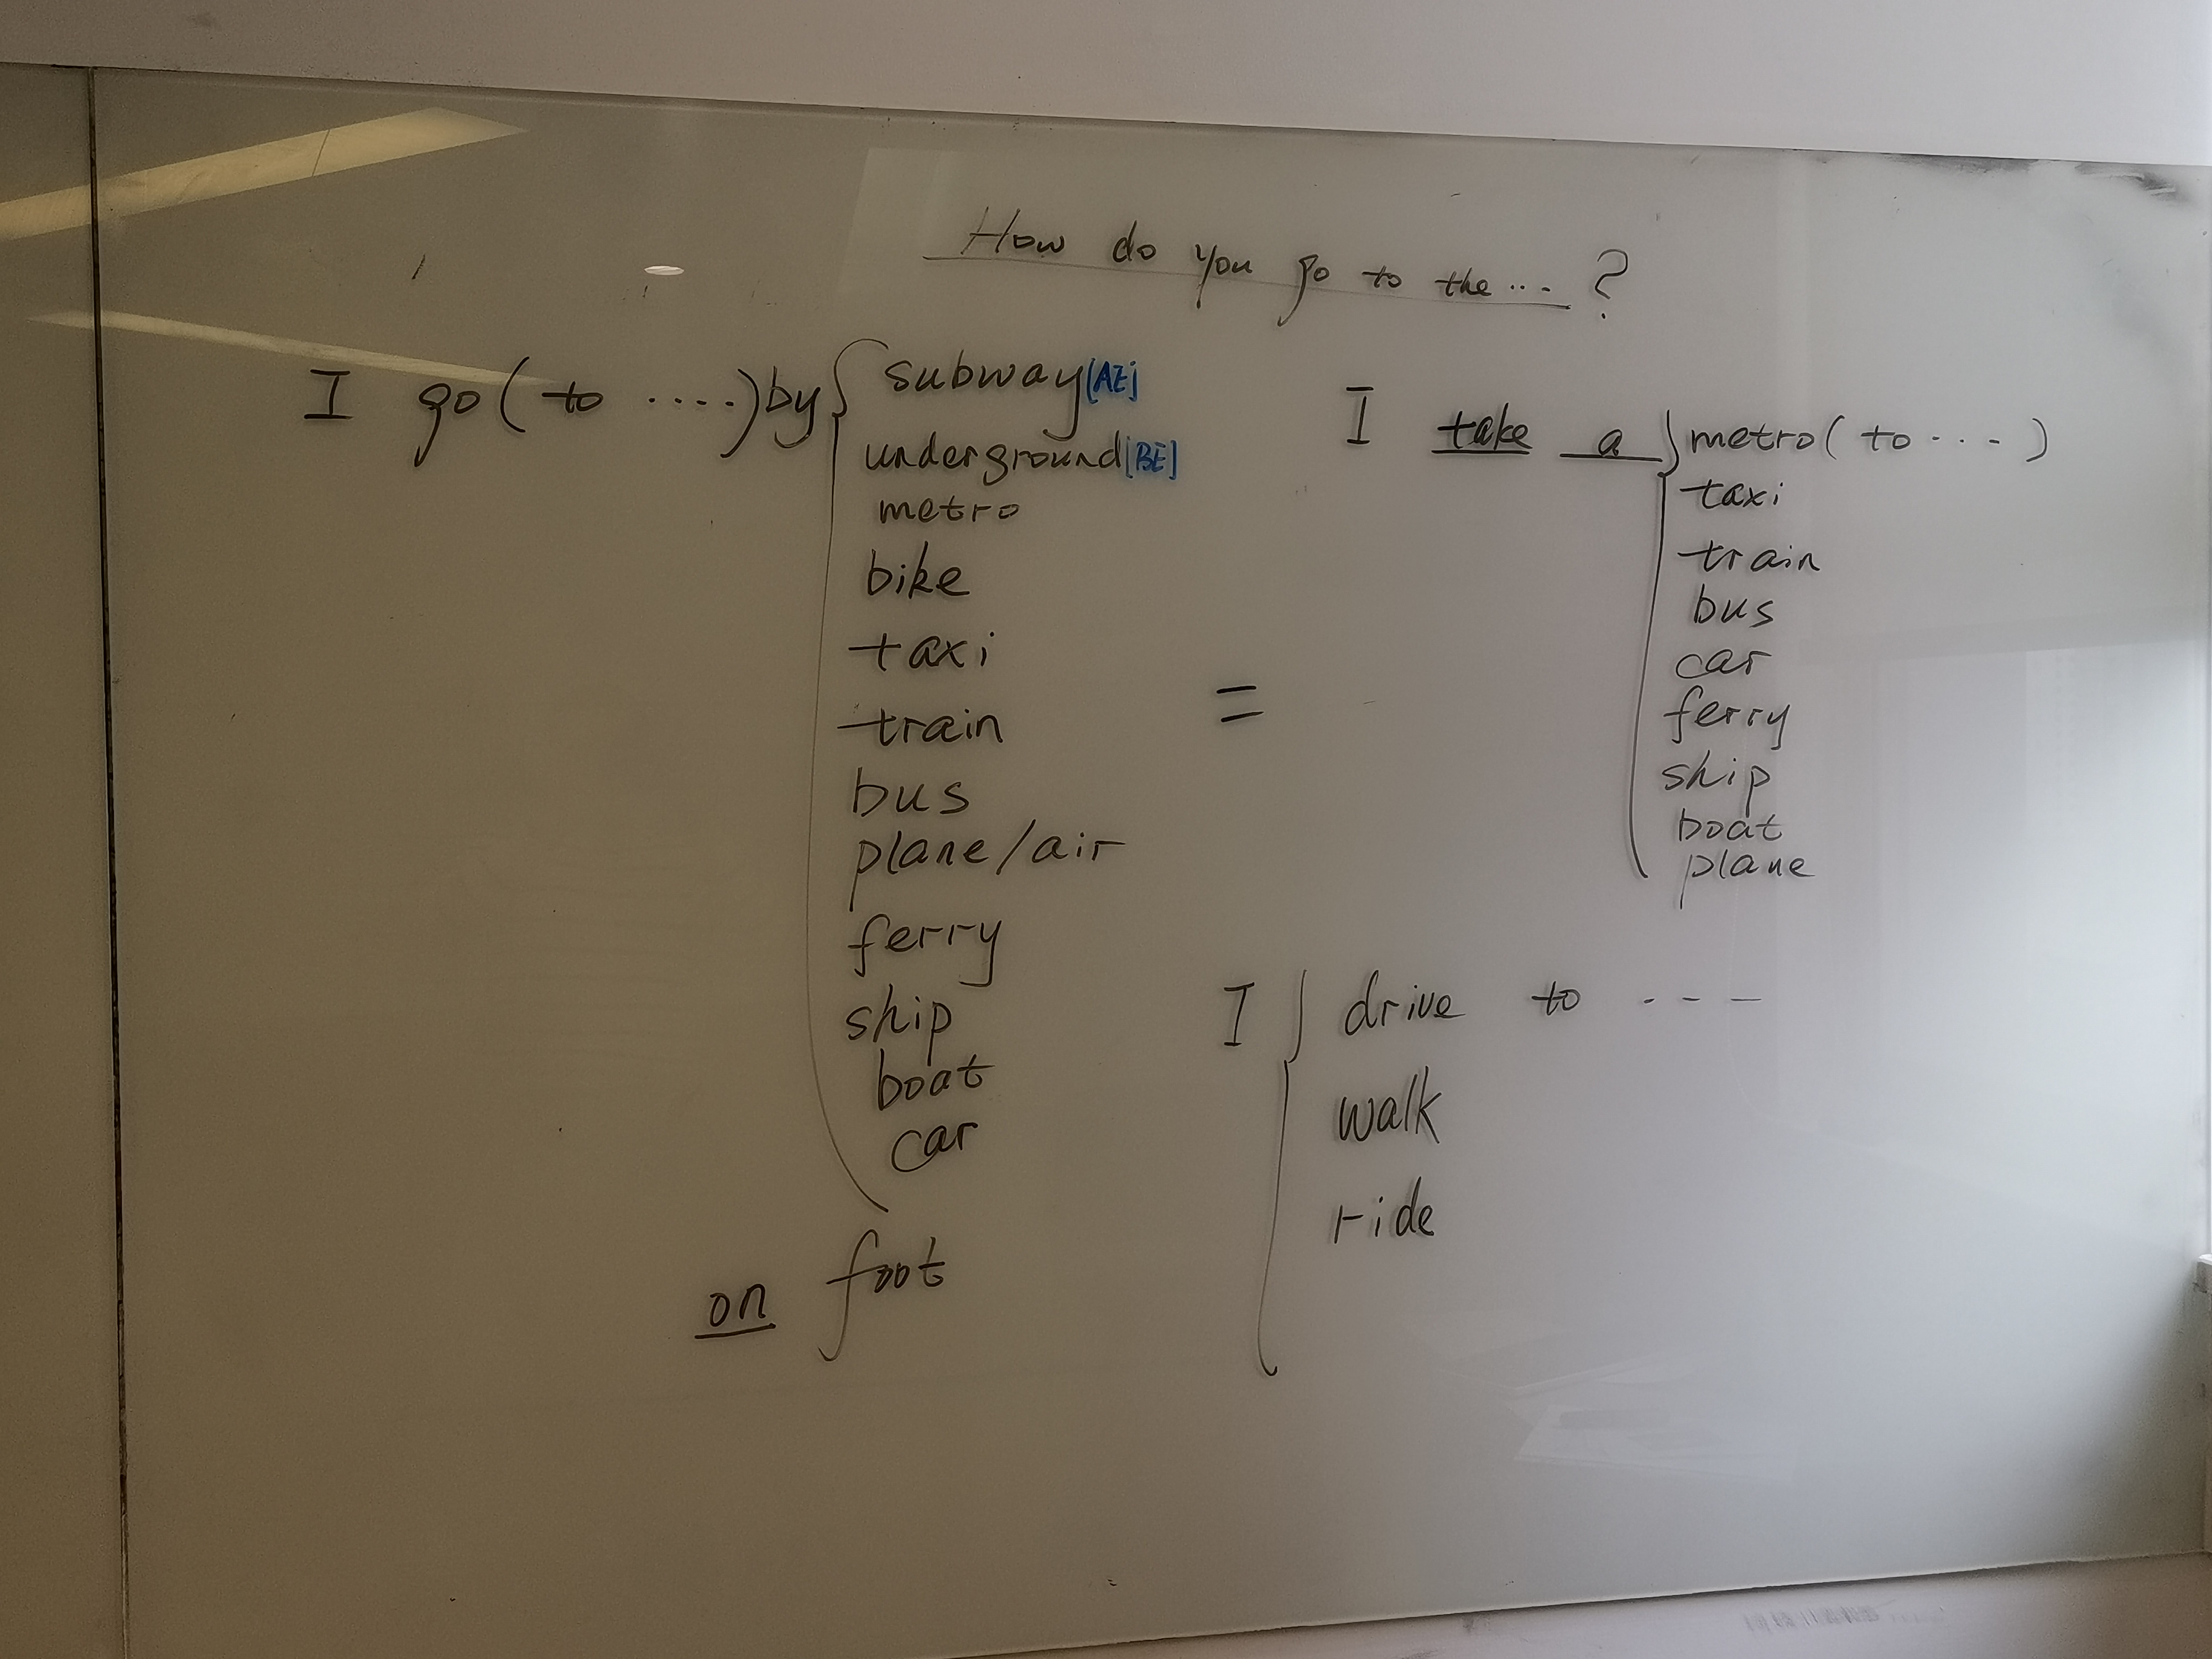 How do you go to the ... ?
I go ( to .... ) by subway [AE]
underground [BE]
metro
bike
taxi
train
bus
plane/air
ferry
ship
boat
car
on foot
=
I take a metro ( to ... )
taxi
train
bus
car
ferry
ship
boat
plane
I drive to ---
walk
ride